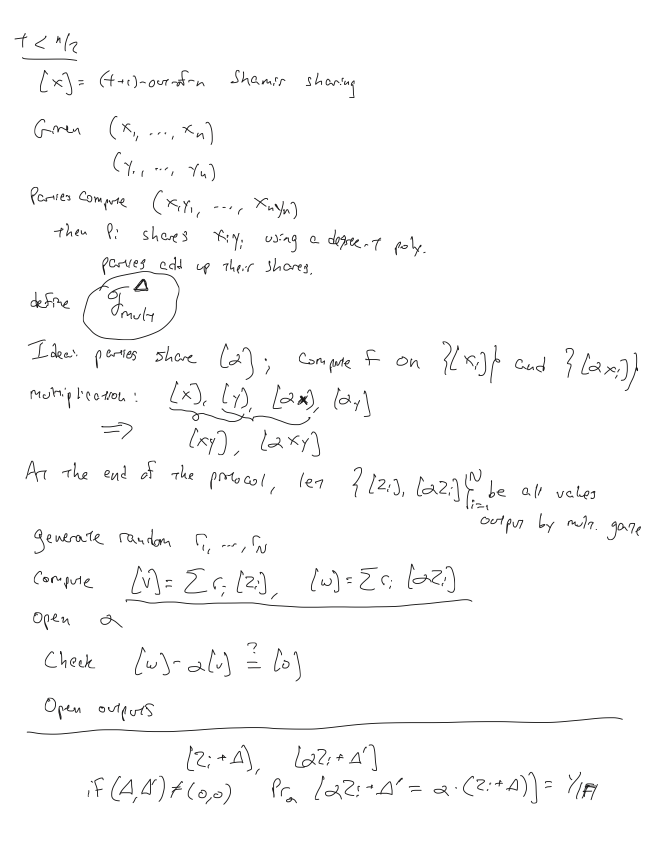 t < n/2
[x] = (t+1)-out-of-n Shamir sharing
Given (x₁, ..., xₙ)
(y₁, ..., yₙ)
Parties compute (x₁y₁, ..., xₙyₙ)
then Pᵢ shares xᵢyᵢ using a degree-t poly.
parties add up their shares.
define F^Δ_mult
Idea: parties share [α]; compute f on {[xᵢ]} and {[αxᵢ]}
multiplication: [x], [y], [αx], [αy]
⇒ [xy], [αxy]
At the end of the protocol, let {[zᵢ], [αzᵢ]}ᴺᵢ₌₁ be all values
output by mult. gate
generate random r₁, ..., r_N
Compute [v] = Σ rᵢ [zᵢ], [w] = Σ rᵢ [αzᵢ]
Open α
Check [w] - α[v] ≟ [0]
Open outputs
[zᵢ + Δ], [αzᵢ + Δ']
if (Δ,Δ') ≠ (0,0) Pr_α [αzᵢ + Δ' = α·(zᵢ + Δ)] = 1/|F|